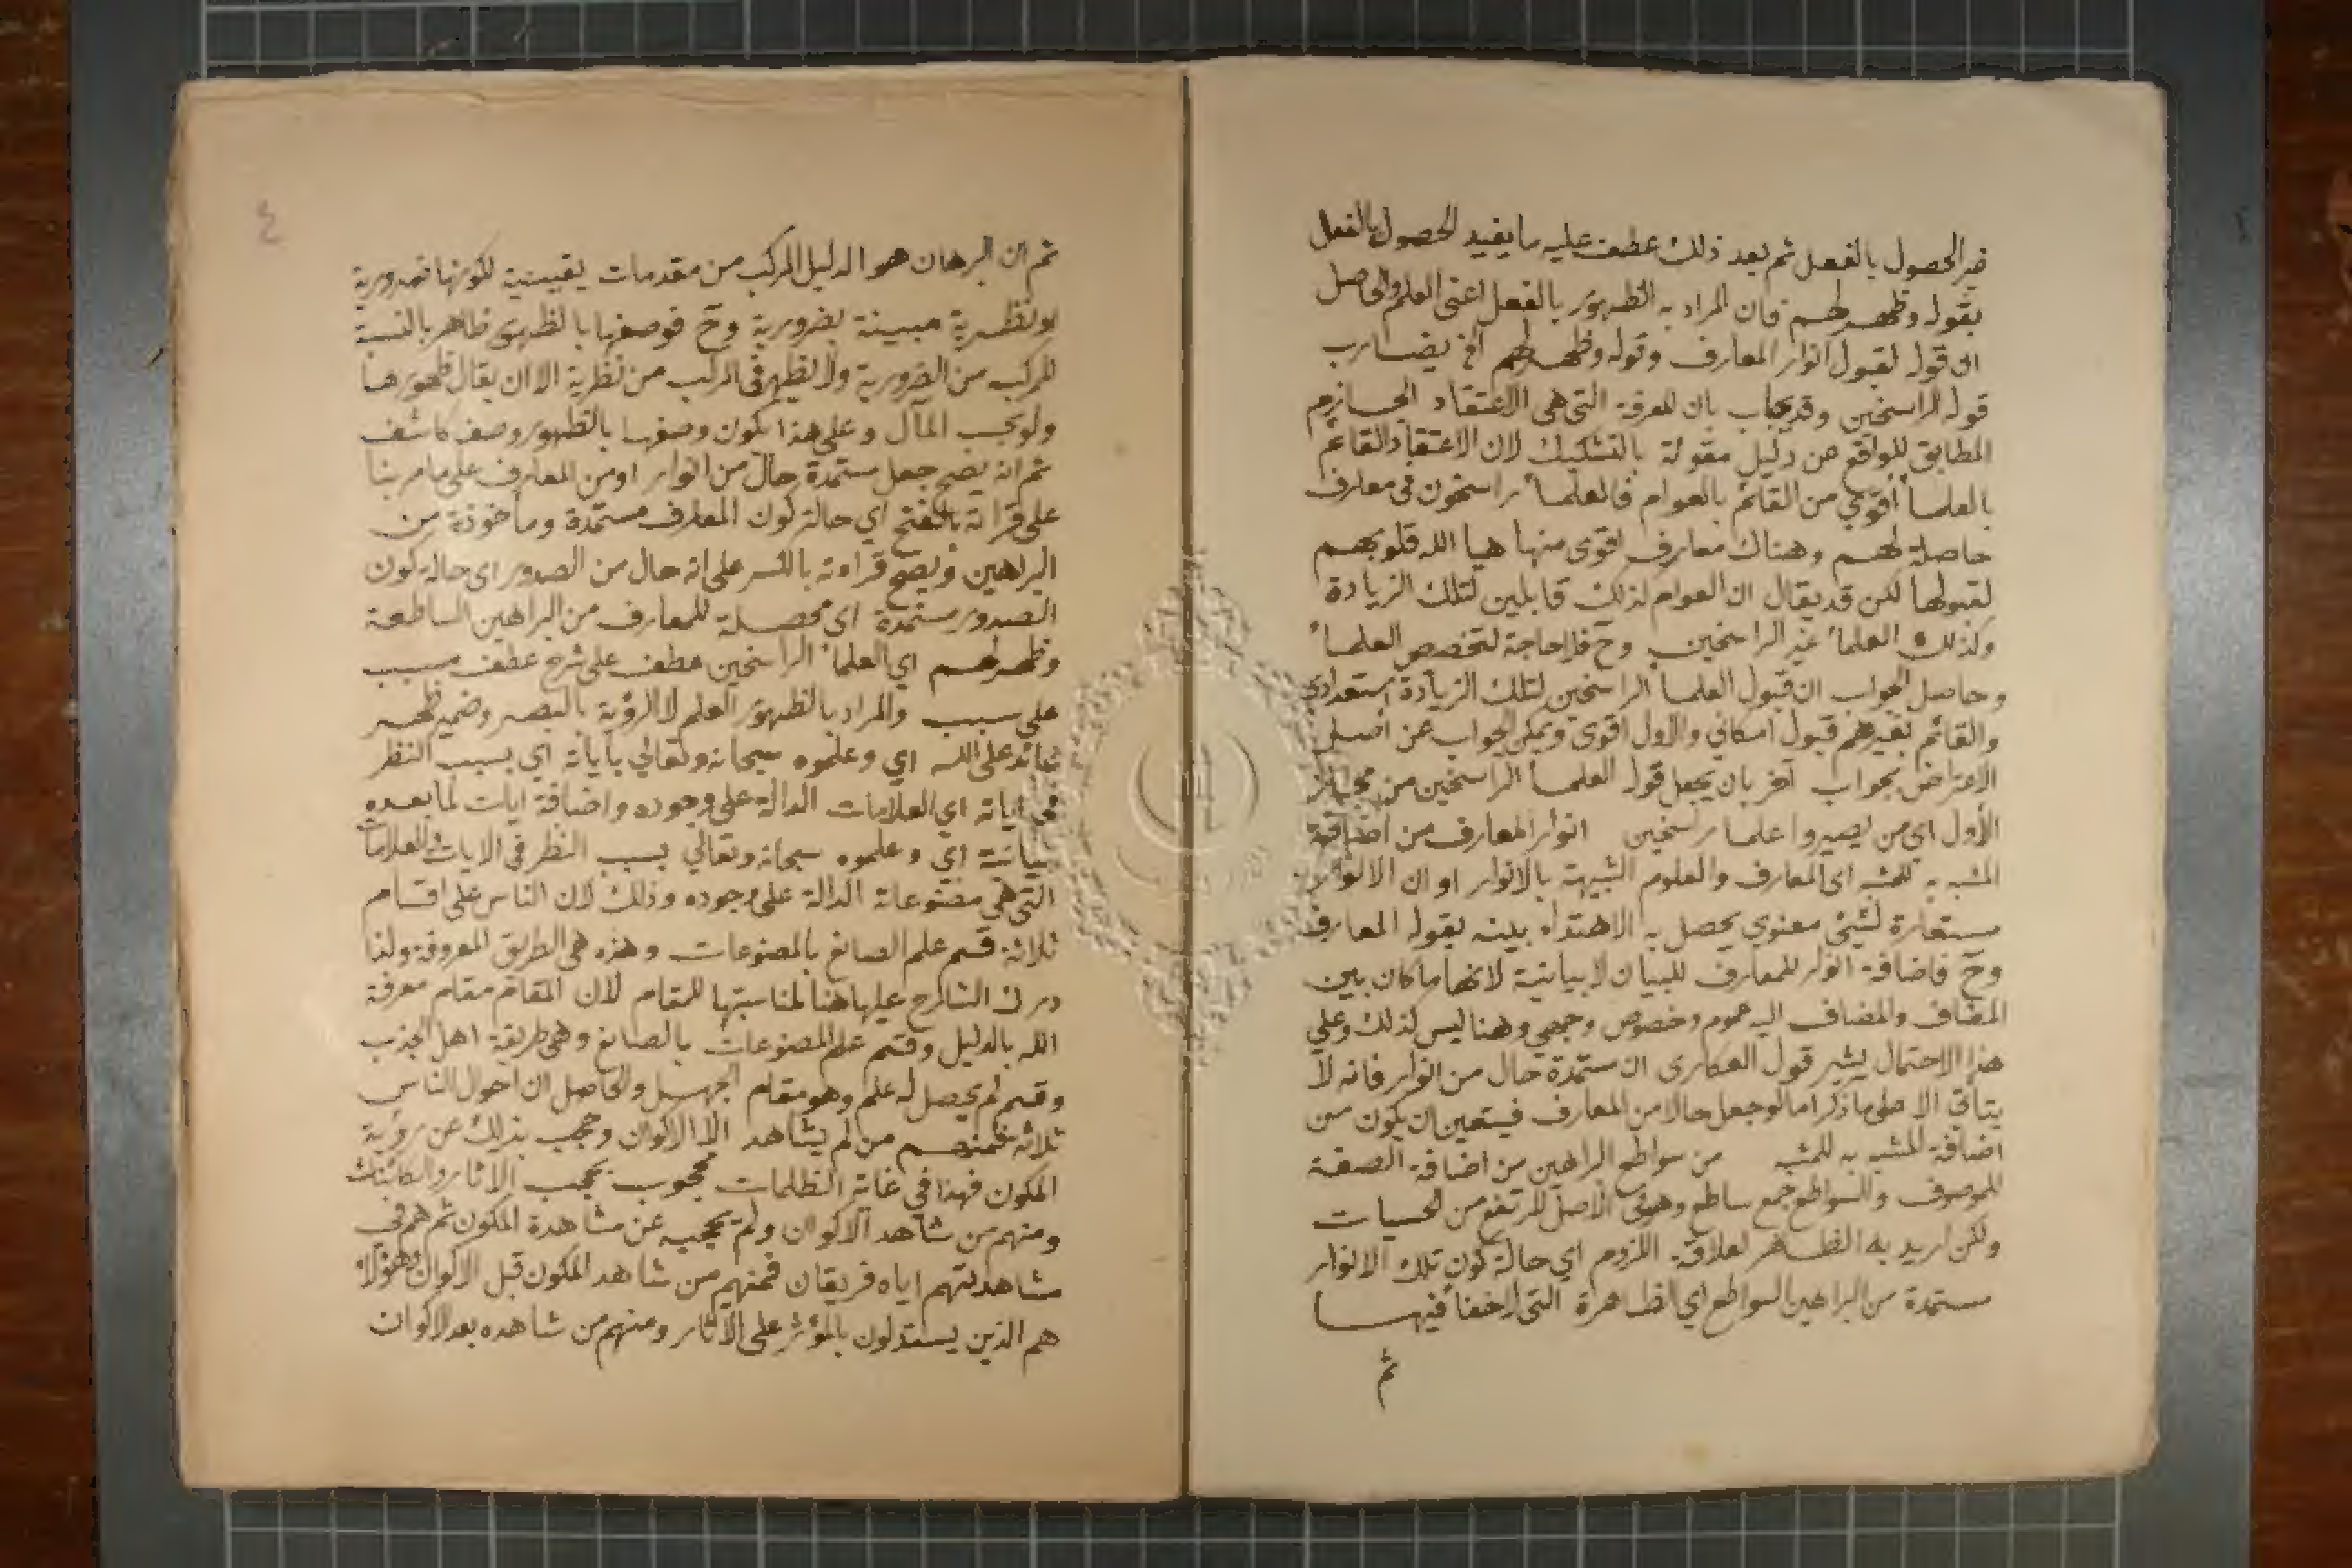 غير الحصول بالفعل ثم بعد ذلك عطف عليه ما يفيد الحصول بالفعل
بقوله وظهر لهم فان المراد به الظهور بالفعل اعني العلم والحاصل
ان قوله لقبول انوار المعارف وقوله وظهر لهم الخ يضارب
قوله الراسخين وقد يجاب بان المعرفة التي هي الاعتقاد الجازم
المطابق للواقع عن دليل مقولة بالتشكيك لان الاعتقاد القائم
بالعلماء أقوي من القائم بالعوام فالعلماء راسخون في معارف
حاصلة لهم وهناك معارف اقوى منها هيا الله قلوبهم
لقبولها لكن قد يقال ان العوام كذلك قابلين لتلك الزيادة
وكذلك العلماء غير الراسخين وح فلا حاجة لتخصص العلماء
وحاصل الجواب ان قبول العلماء الراسخين لتلك الزيادة استعدادي
والقائم بغيرهم قبول امكاني والاول اقوى ويمكن الجواب عن اصل
الاعتراض بجواب آخر بان يجعل قوله العلماء الراسخين من مجاز
الأول اى من يصيروا علما راسخين انوار المعارف من اضافة
المشبه به للمشبه اى المعارف والعلوم الشبيهة بالانوار او ان الانوار
مستعارة لشيئ معنوي يحصل به الاهتداء بينه بقوله المعارف
وح فاضافة انوار للمعارف للبيان لا بيانية لانها ما كان بين
المضاف والمضاف اليه عموم وخصوص وجهي وهنا ليس كذلك وعلي
هذا الاحتمال يشير قول العكارى ان مستمدة حال من انوار فانه لا
يتأتي الا على ما ذكر اما لو جعل حالا من المعارف فيتعين ان يكون من
اضافة المشبه به للمشبه من سواطع البراهين من اضافة الصفة
للموصوف والسواطع جمع ساطع وهو في الاصل المرتفع من الحسيات
ولكن اريد به الظاهر لعلاقة اللزوم اي حالة كون تلك الانوار
مستمدة من البراهين السواطع اي الظاهرة التي لا خفا فيها
ثم
٤
ثم ان البرهان هو الدليل المركب من مقدمات يقينية لكونها ضرورية
او نظرية مبينة بضرورية وح فوصفها بالظهور ظاهر بالنسبة
للمركب من الضرورية ولا يظهر في المركب من نظرية الا ان يقال ظهورها
ولو بحسب المآل وعلى هذا يكون وصفها بالظهور وصف كاشف
ثم انه يصح جعل مستمدة حال من انوار او من المعارف على ما مر بنا
على قراءته بالفتح اي حالة كون المعارف مستمدة وماخوذة من
البراهين ويصح قراءته بالكسر على انه حال من الصدور اى حالة كون
الصدور مستمدة اى محصلة للمعارف من البراهين الساطعة
وظهر لهم اي العلماء الراسخين عطف على شرح عطف مسبب
على سبب والمراد بالظهور العلم لا الرؤية بالبصر وضمير ظهر
عائد على الله اي وعلموه سبحانه وتعالي بآياته اي بسبب النظر
في اياته اي العلامات الدالة على وجوده واضافة ايات لما بعده
بيانية اي وعلموه سبحانه وتعالي بسبب النظر في الايات والعلامات
التي هي مصنوعاته الدالة على وجوده وذلك لان الناس على اقسام
ثلاثة قسم علم الصانع بالمصنوعات وهذه هي الطريق المعروفة ولذا
درك الشارح عليها هنا لمناسبتها للمقام لان المقام مقام معرفة
الله بالدليل وقسم علم المصنوعات بالصانع وهي طريقة اهل الجذب
وقسم لم يحصل له علم وهو مقام الجهل والحاصل ان احوال الناس
ثلاثة فمنهم من لم يشاهد الا الاكوان وحجب بذلك عن رؤية
المكون فهذا في غاية الظلمات محجوب بحجب الاثار والكائنات
ومنهم من شاهد الاكوان ولم يحجب عن مشاهدة المكون ثم هم في
مشاهدتهم اياه فريقان فمنهم من شاهد المكون قبل الاكوان وهؤلاء
هم الذين يستدلون بالمؤثر على الآثار ومنهم من شاهده بعد الاكوان